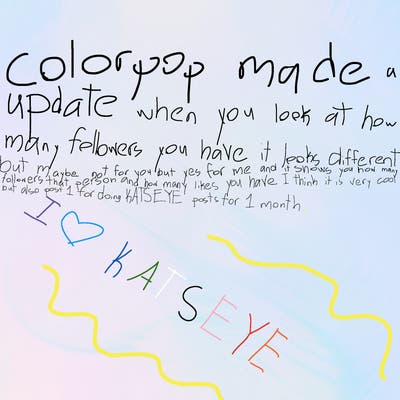 colorpop made a
update when you look at how
many followers you have it looks different
but maybe not for you but yes for me and it shows you how many
followers that person and how many likes you have I think it is very cool
but also post 1 for doing KATSEYE posts for 1 month
I ♡ KATSEYE